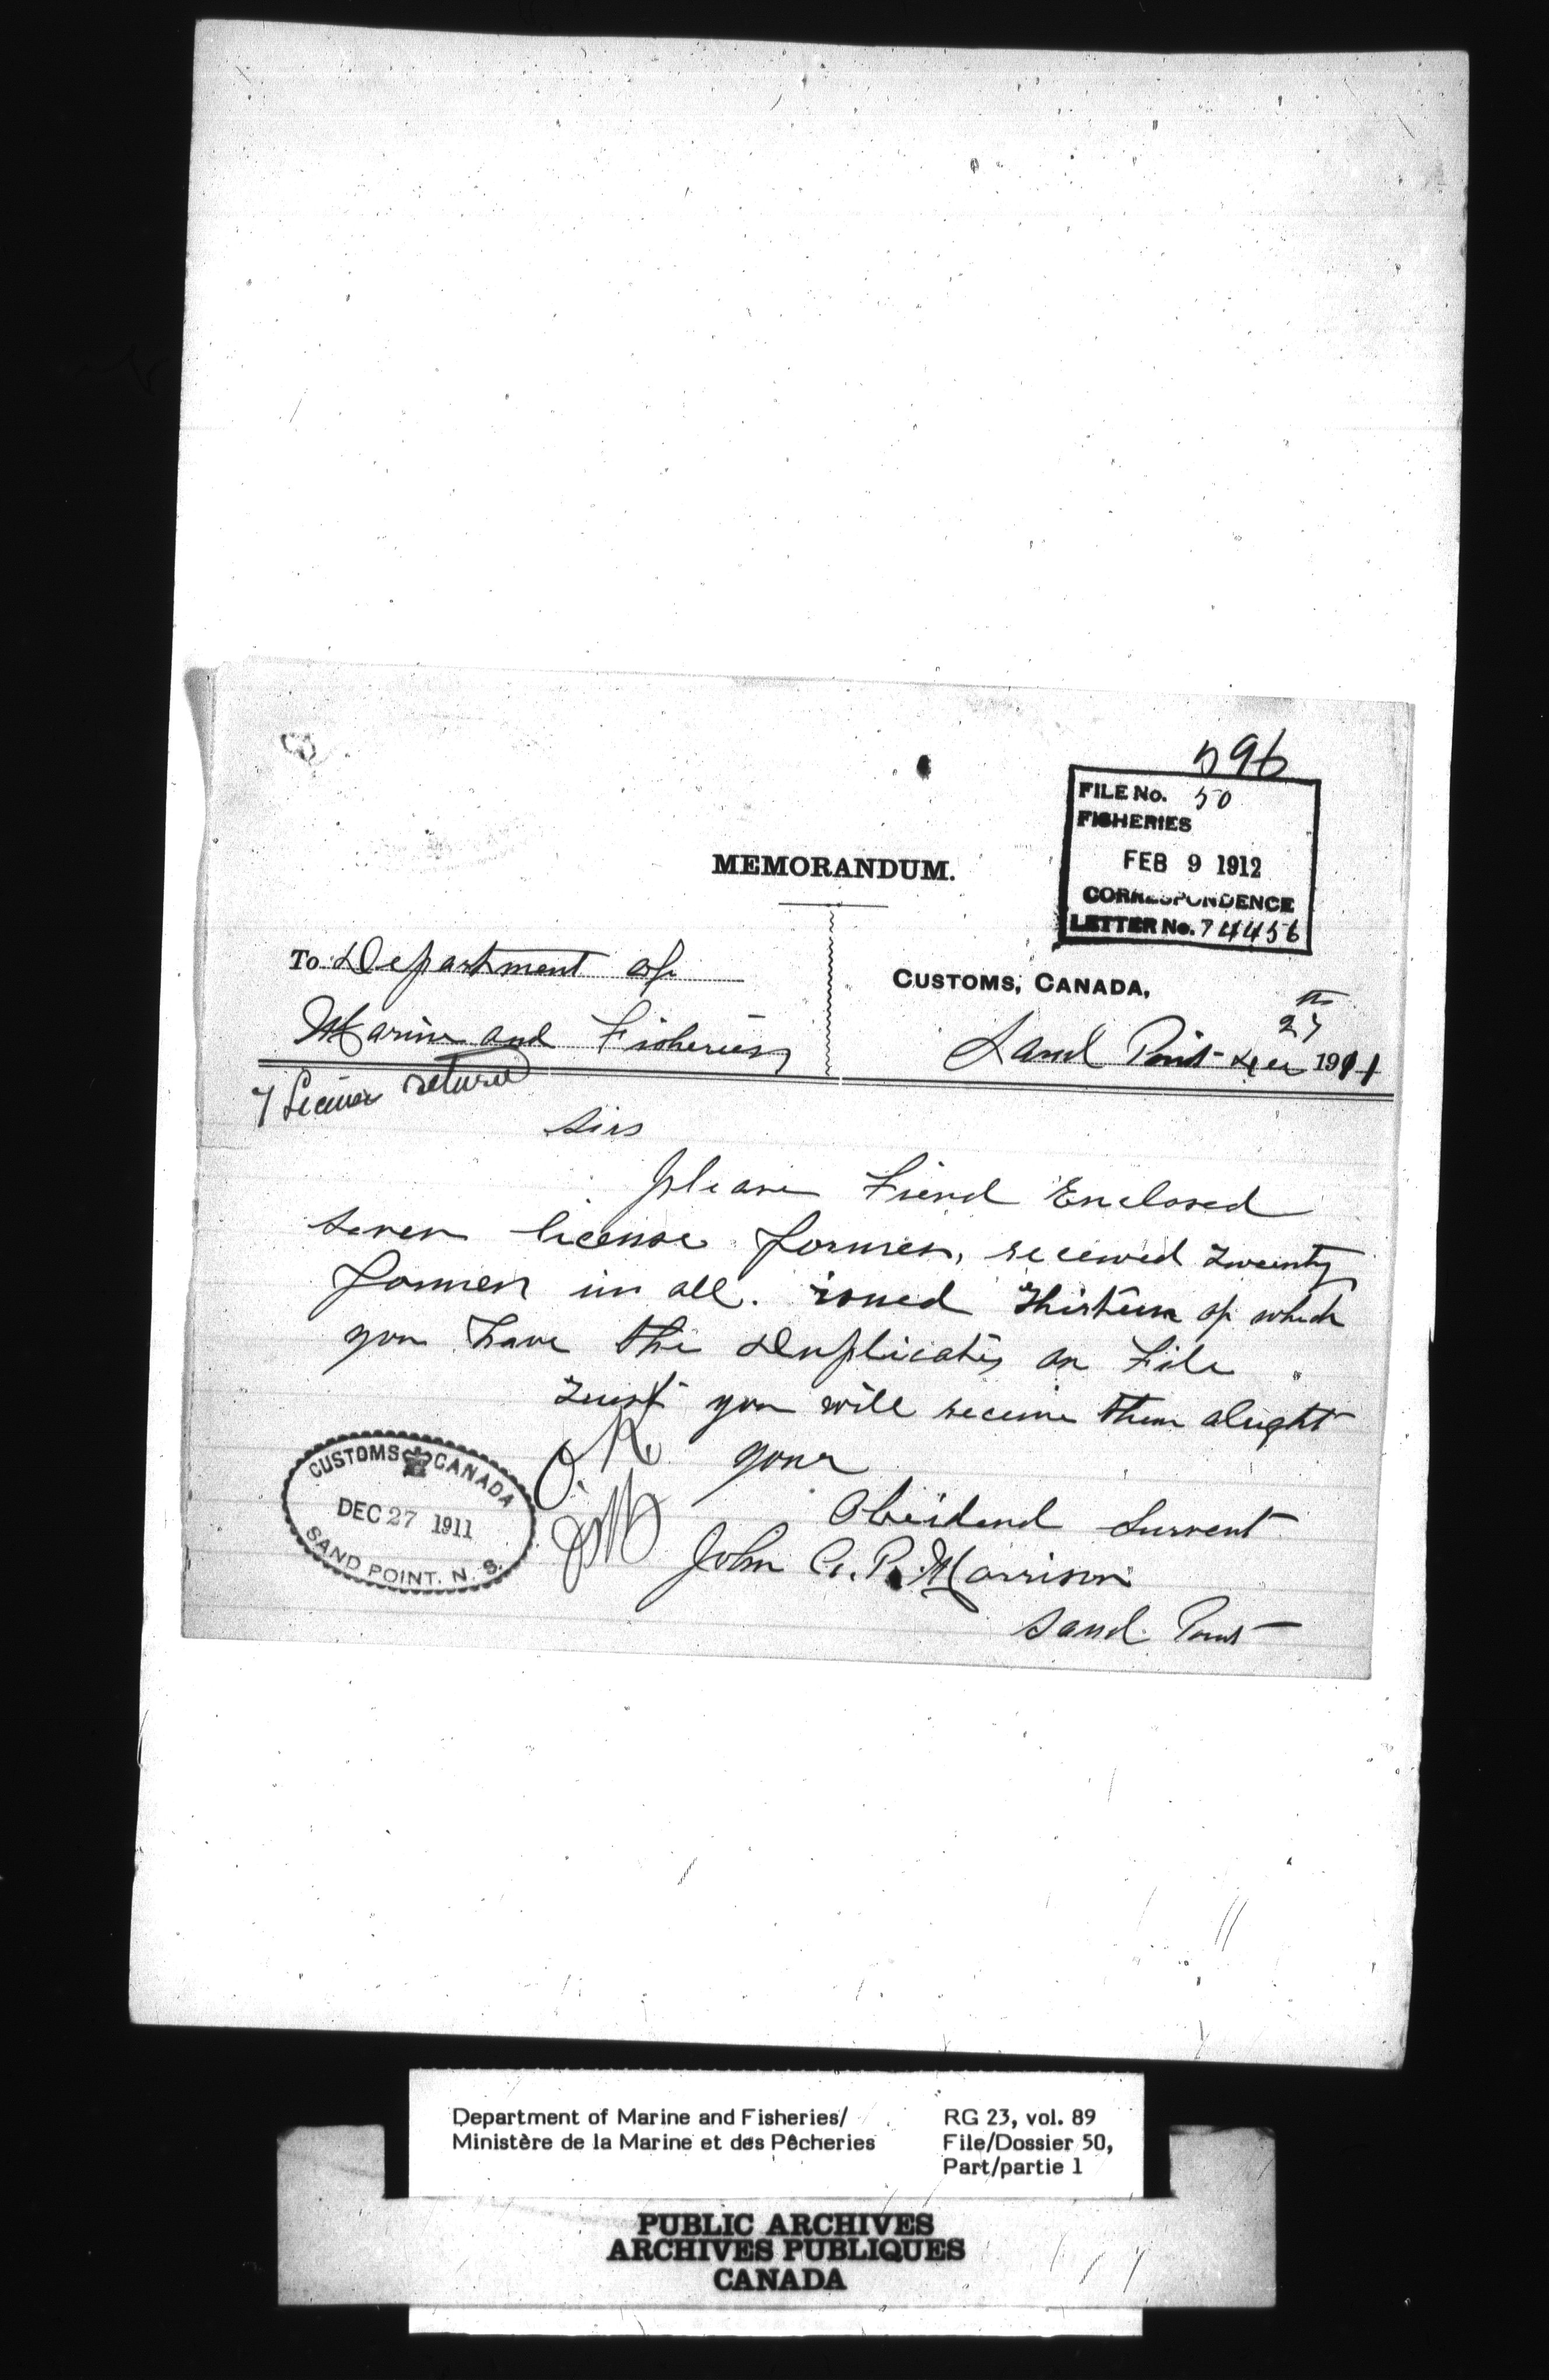 596
FILE No. 50
FISHERIES
FEB 9 1912
CORRESPONDENCE
LETTER No. 74456
MEMORANDUM.
To Department of
Marine and Fisheries
CUSTOMS, CANADA,
Sand Point Dec 27th 1911
7 License returned
Sirs
please Fiend Enclosed
seven license formes, received twenty
formes in all. issued thirteen of which
you have the Duplicates on File
Trust you will receive them alright
O.K. your
Obeidend Survent
John C. P. Morrison
Sand Point
CUSTOMS CANADA
DEC 27 1911
SAND POINT. N. S.
Department of Marine and Fisheries/
Ministère de la Marine et des Pêcheries
RG 23, vol. 89
File/Dossier 50,
Part/partie 1
PUBLIC ARCHIVES
ARCHIVES PUBLIQUES
CANADA